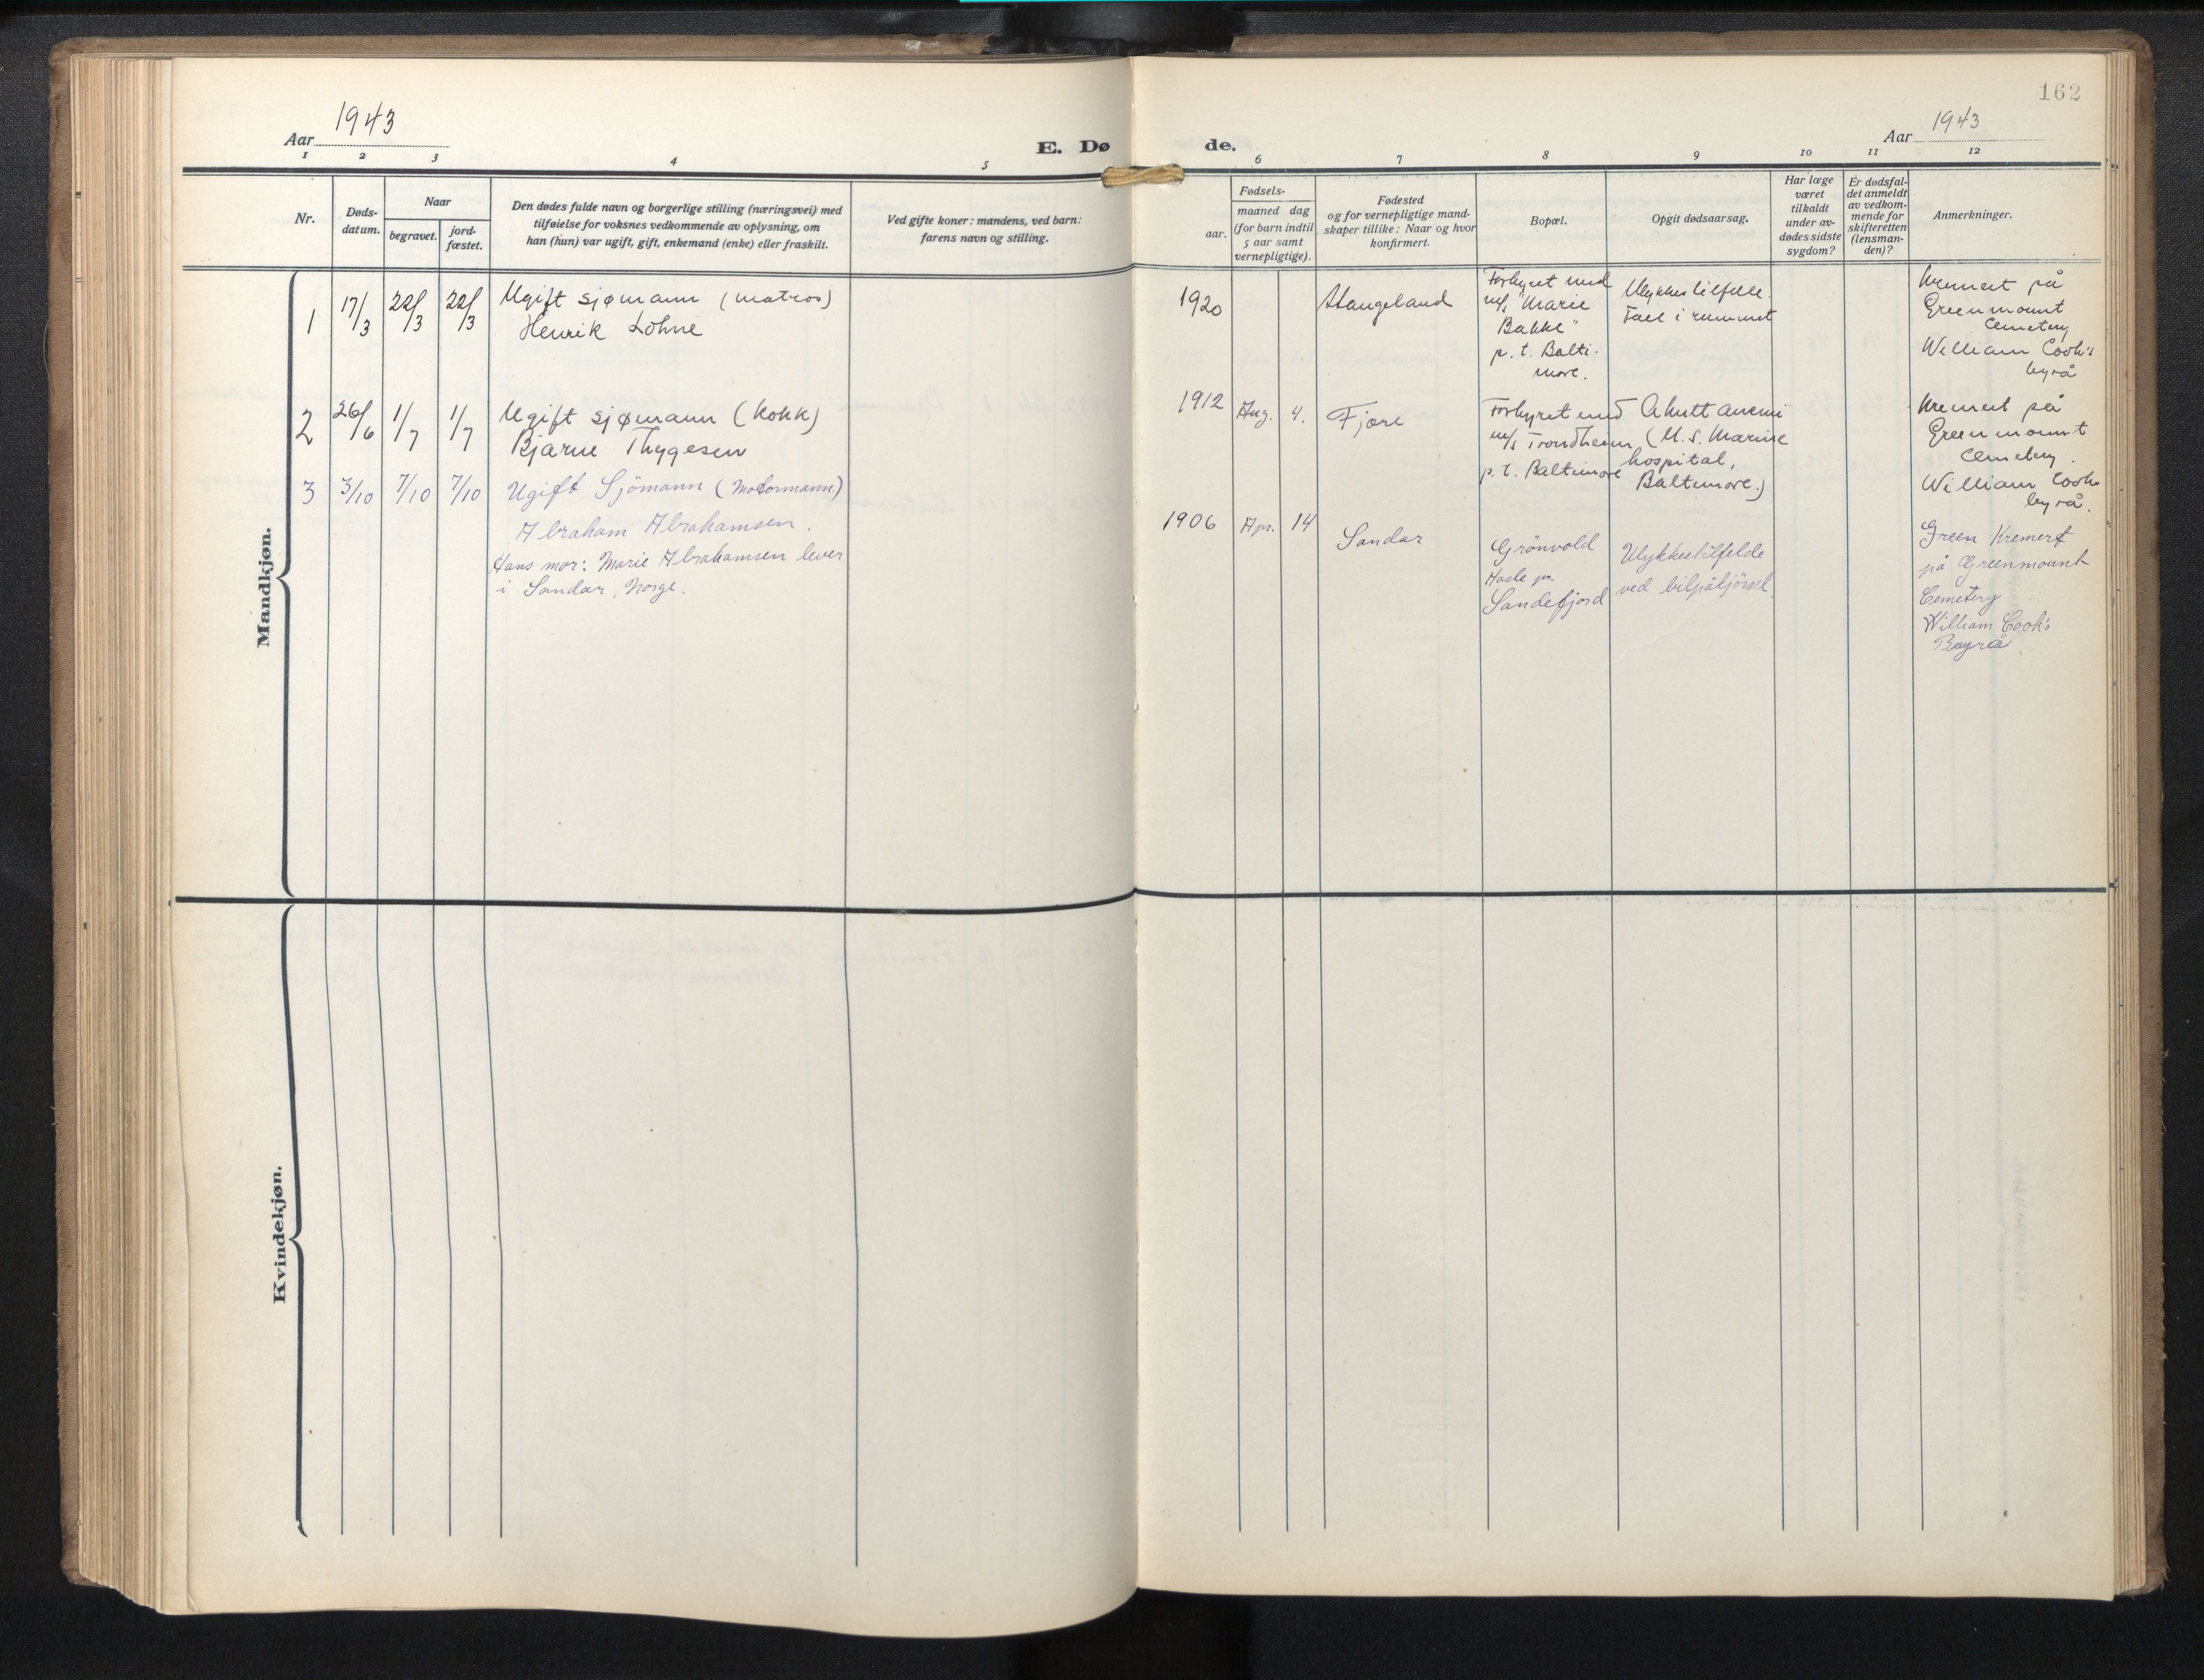 162
Aar 1943
E. Dø
de.
Aar 1943
1 2 3 4 5
6 7 8 9 10 11 12
Nr.
Døds-
datum.
Naar
begravet.
jord-
fæstet.
Den dødes fulde navn og borgerlige stilling (næringsvei) med
tilføielse for voksnes vedkommende av oplysning, om
han (hun) var ugift, gift, enkemand (enke) eller fraskilt.
Ved gifte koner: mandens, ved barn:
farens navn og stilling.
Fødsels-
aar.
maaned dag
(for barn indtil
5 aar samt
vernepligtige).
Fødested
og for vernepligtige mand-
skaper tillike: Naar og hvor
konfirmert.
Bopæl.
Opgit dødsaarsag.
Har læge
været
tilkaldt
under av-
dødes sidste
sygdom?
Er dødsfal-
det anmeldt
av vedkom-
mende for
skifteretten
(lensman-
den)?
Anmerkninger.
Mandkjøn.
1
17/3
22/3
22/3
Ugift sjømann (matros)
Henrik Lohne
1920
Stangeland
Forhyret med
m/s "Marie
Bakke"
p. t. Balti-
more.
Ulykkestilfelle.
Fall i rummet
Kremert på
Greenmount
Cemetery
William Cook's
byrå
2
26/6
1/7
1/7
Ugift sjømann (kokk)
Bjarne Thygesen
1912
Aug.
4.
Fjære
Forhyret med
m/s Trondheim
p. t. Baltimore
Akutt anemi
(U. S. Marine
hospital,
Baltimore.)
Kremert på
Greenmount
Cemetery.
William Cook
byrå.
3
3/10
7/10
7/10
Ugift Sjömann (Motormann)
Abraham Abrahamsen.
Hans mor: Marie Abrahamsen lever
i Sandar, Norge.
1906
Apr.
14
Sandar
Grönvold
Hasle pr.
Sandefjord
Ulykkestilfelde
ved bilpåkjörsel.
Green Kremert
på Greenmount
Cemetery
William Cook's
Bayrå.
Kvindekjøn.